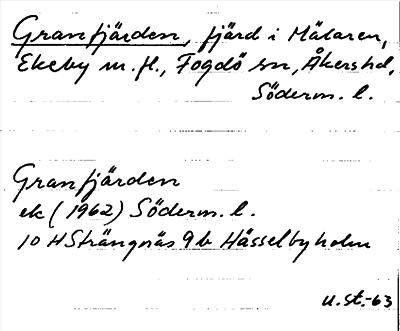 Granfjärden, fjärd i Mälaren,
Ekeby m.fl., Fogdö sn, Åkers hd,
Söderm. l.
Granfjärden
ek (1962) Söderm. l.
10 H Strängnäs 9 b Hässelbyholm
U.st.-63